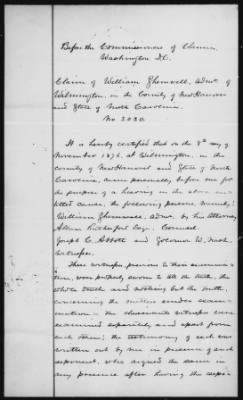 Before the Commissioners of Claims,
Washington D.C.
Claim of William Shemwell, Admr. of
Wilmington, in the County of New Hanover
and State of North Carolina.
No 2030.
It is hereby certified that on the 8th day of
November 1876, at Wilmington, in the
County of New Hanover and State of North
Carolina, came personally before me for
the purpose of a hearing in the above en-
titled cause, the following persons, namely:
William Shemwell, Admr. by his attorney,
Allan Rutherford Esq., Counsel.
Joseph C. Abbott and Governor W.
witnesses.
These witnesses previous to their examina-
tion, were properly sworn to tell the truth, the
whole truth and nothing but the truth,
concerning the matters under exam-
ination - the claimants witnesses were
examined separately and apart from
each other; the testimony of each was
written out by me in presence of each
deponent, who signed the same in
my presence after having the depo-